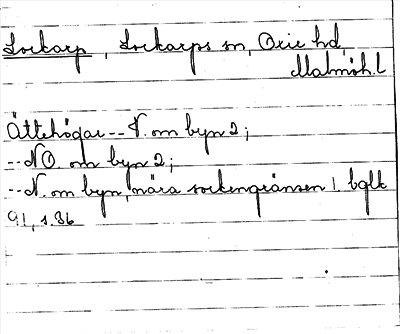 Lockarp, Lockarps sn, Oxie hd,
Malmöh. l
Ättehögar -- N. om byn 2;
-- NO. om byn 2;
-- N. om byn, nära sockengränsen 1. bglk
91, s. 36